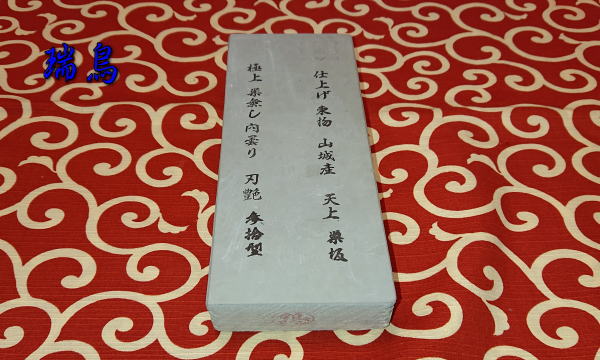 瑞鳥
仕上げ 東物 山城産 天上 巣板
極上 巣無し 内曇り 刃艶 参拾型